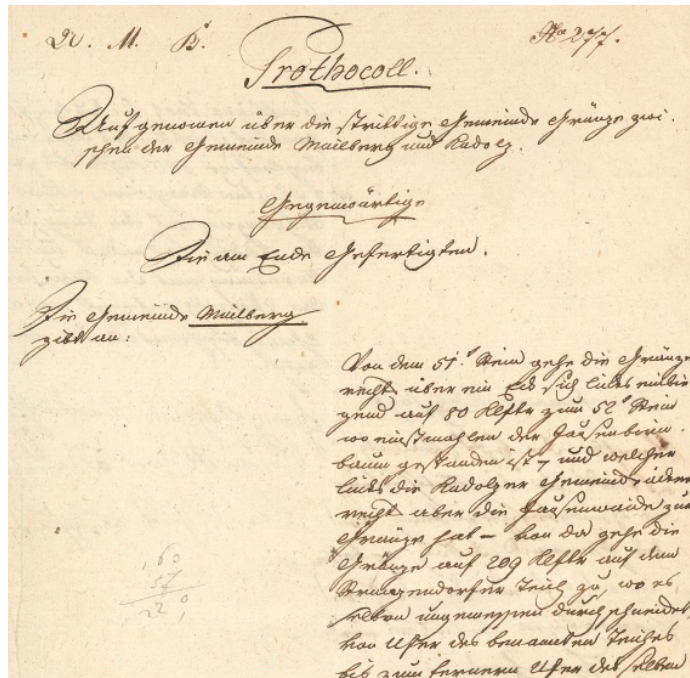 V. M. B. No 277.
Prothocoll.
Aufgenomen über die strittige Gemeinde Gränze zwi-
schen der Gemeinde Mailberg und Kadolz.
Gegenwärtige
Die am Ende Gefertigten.
Die Gemeinde Mailberg
gibt an:
Von dem 51t Stein gehe die Gränze
rechts über ein Eck sich links einbie
gend auf 80 Klftr zum 52t Stein
wo einstmahlen der
baum gestanden ist – und welcher
links die Kadolzer Gemeinde
rechts aber die zur
Gränze hat – von da gehe die
Gränze auf 209 Klftr auf dem
Teich zu, wo es
selben ungemessen durchschneidet,
von Ufer des benannten Teiches
bis zum fernern Ufer des selben
160
57
220